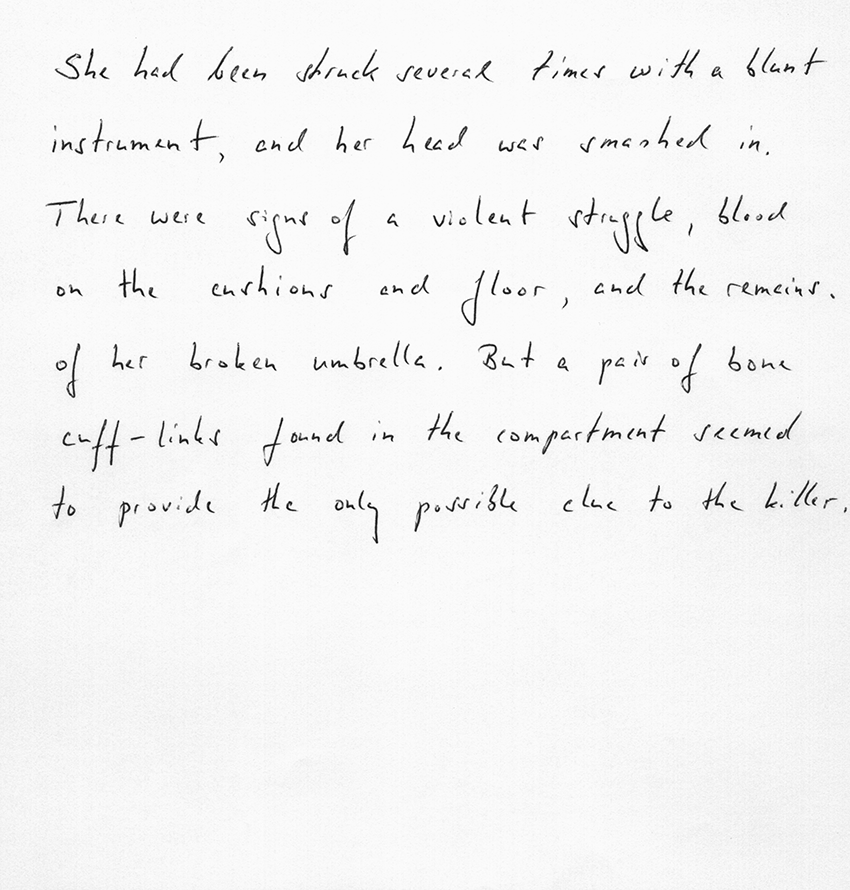 She had been struck several times with a blunt
instrument, and her head was smashed in.
There were signs of a violent struggle, blood
on the cushions and floor, and the remains.
of her broken umbrella. But a pair of bone
cuff-links found in the compartment seemed
to provide the only possible clue to the killer.